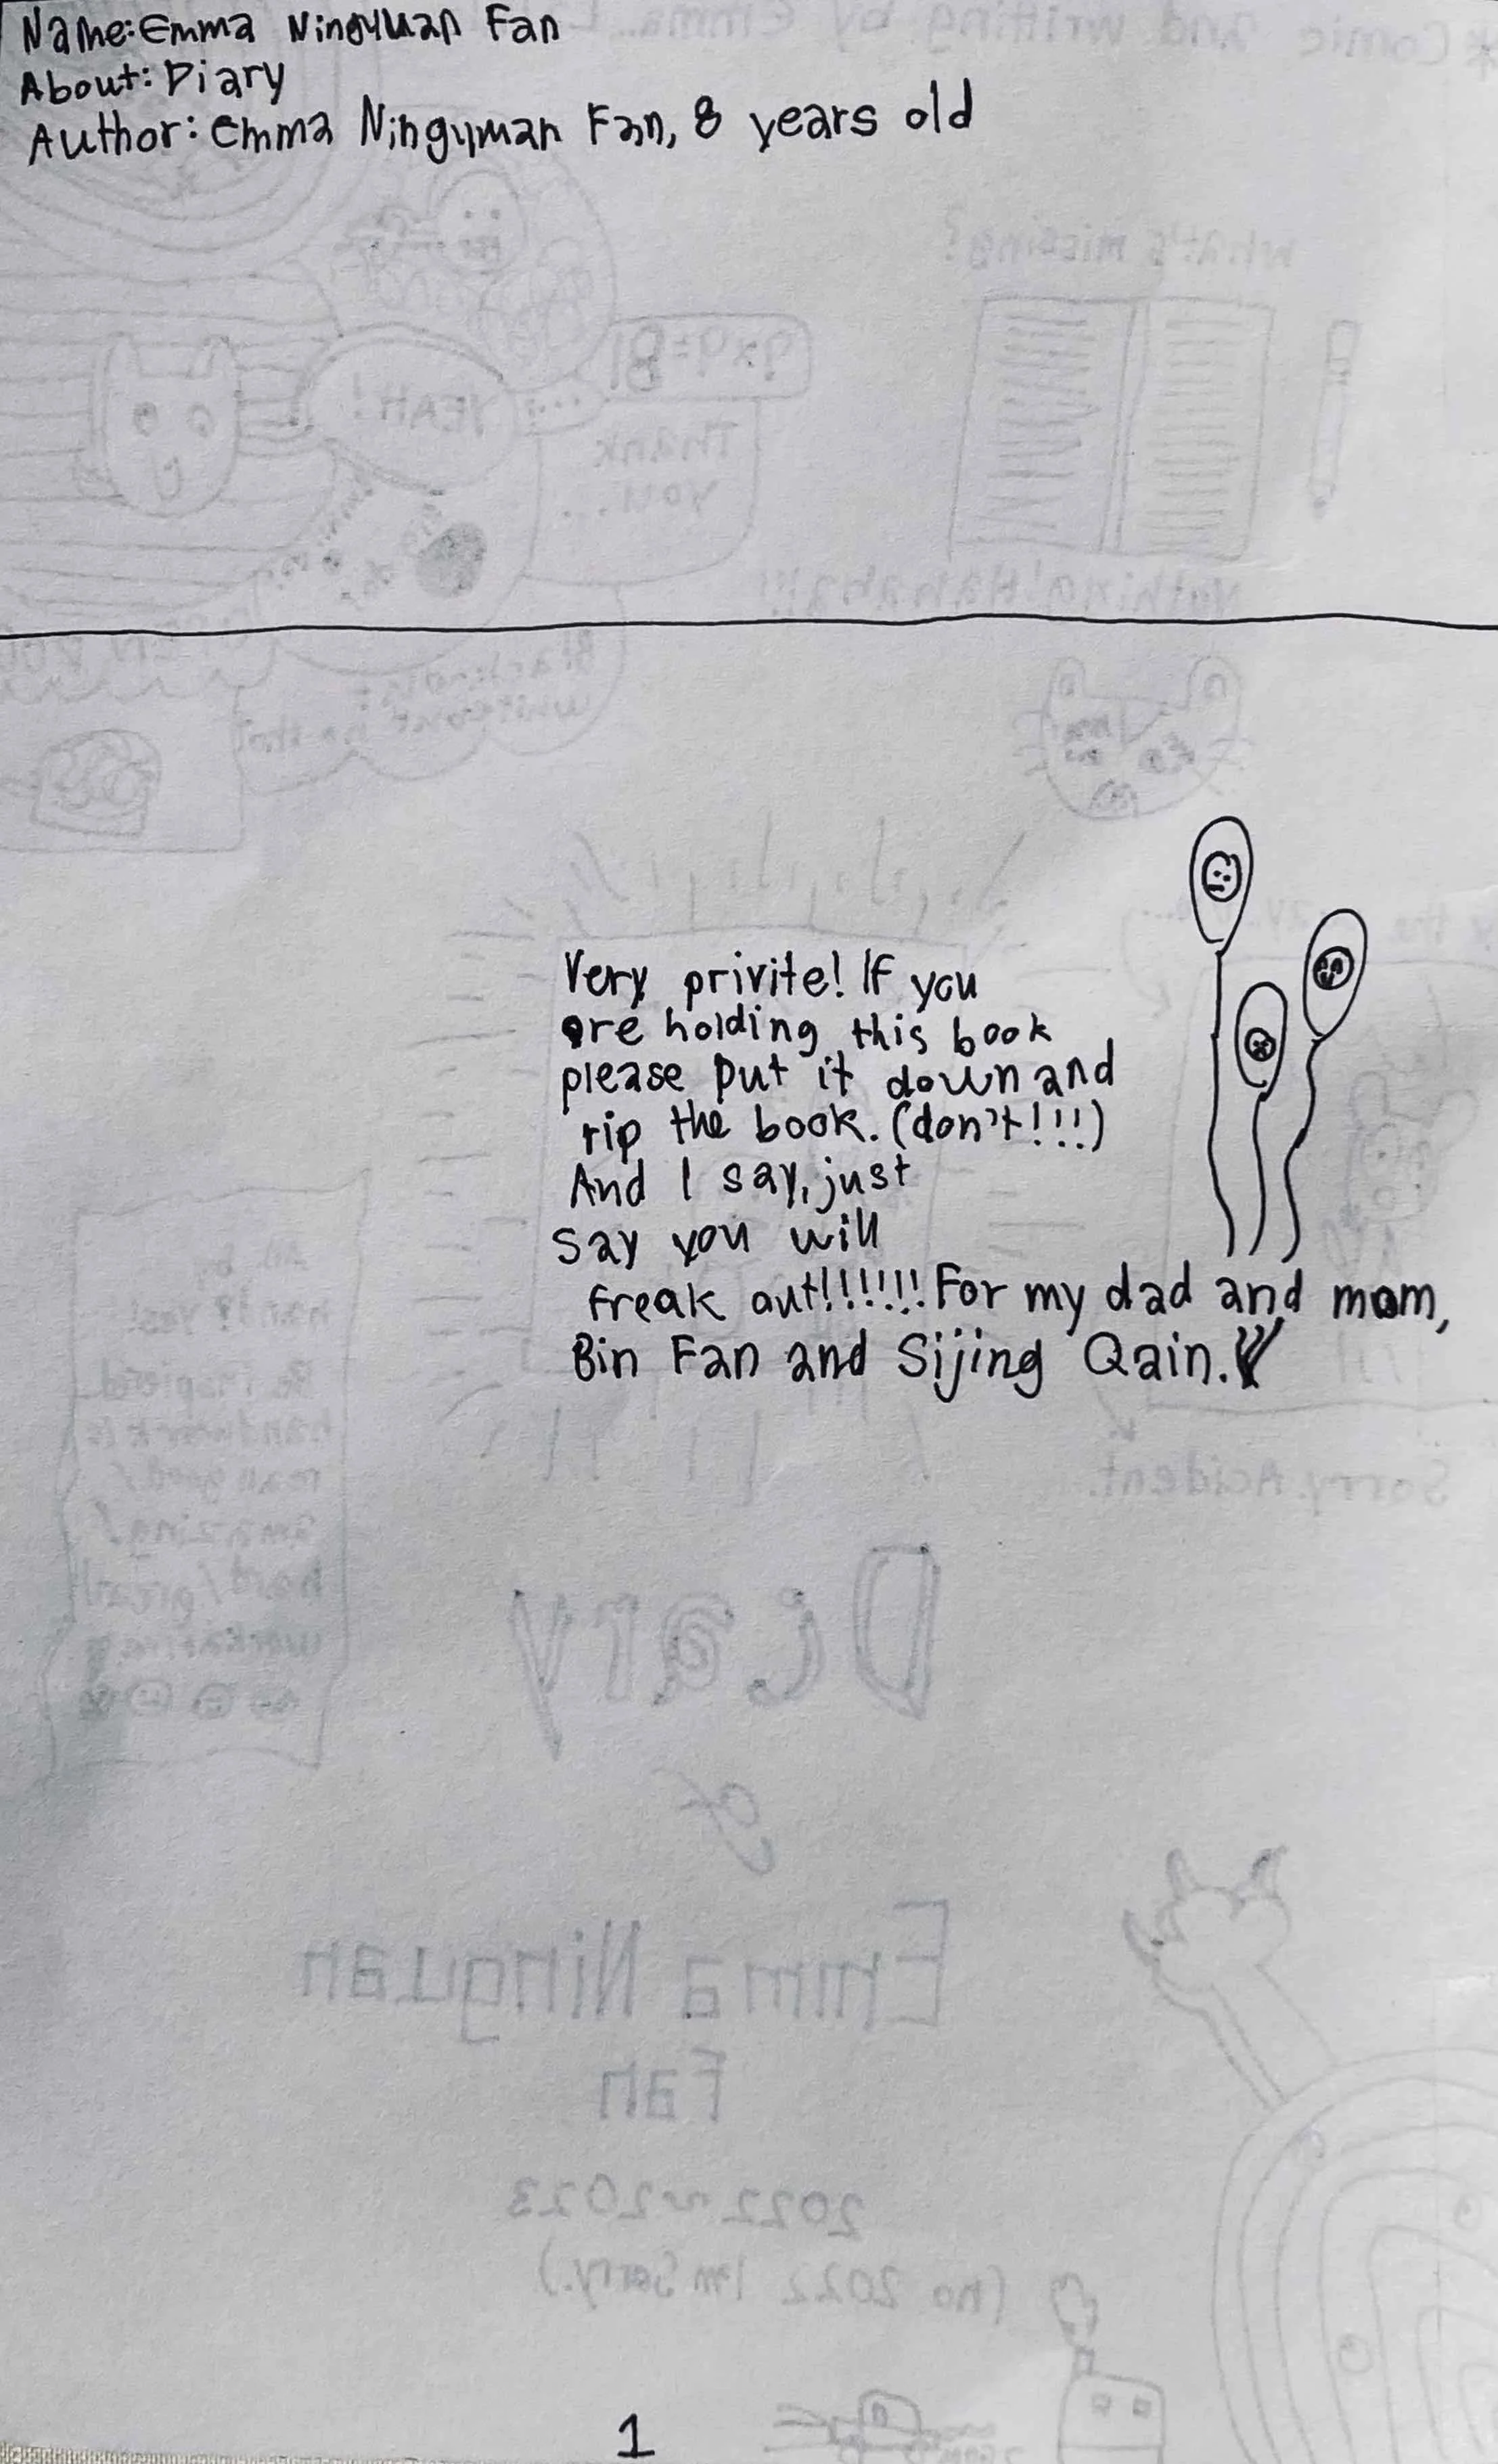 Name: Emma Ningyuan Fan
About: Diary
Author: Emma Ningyuan Fan, 8 years old
Very privite! If you
are holding this book
please put it down and
rip the book. (don't!!!)
And I say, just
say you will
freak out!!!!!!! For my dad and mom,
Bin Fan and Sijing Qain.
1